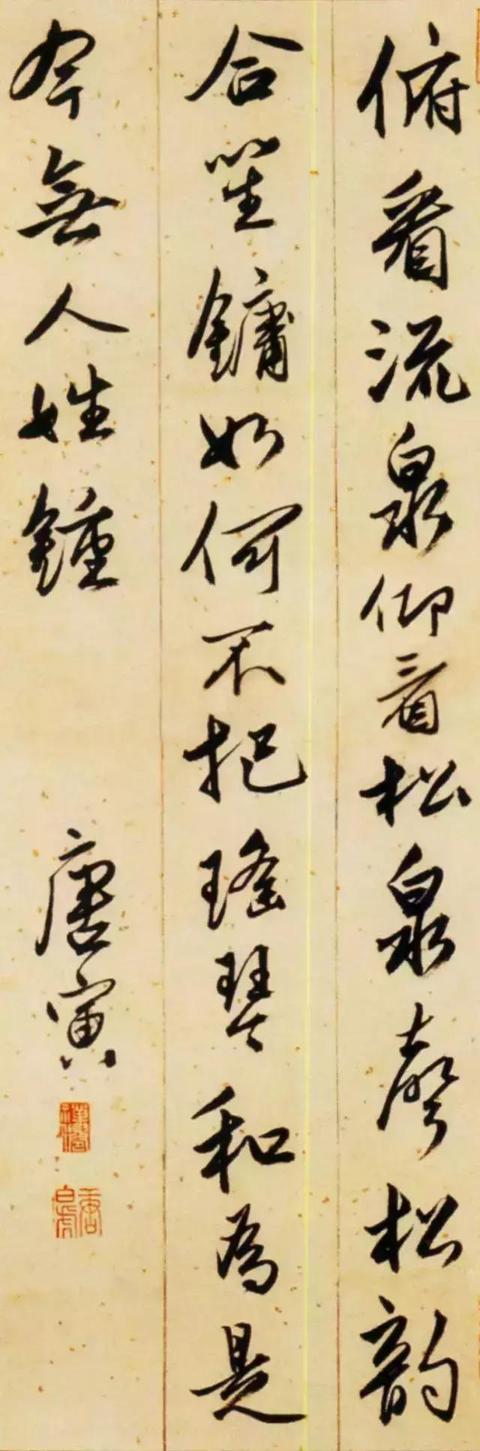 俯看流泉仰看松泉聲松韵
合笙鏞如何不把瑤琴和為是
今無人姓鍾
唐寅
唐白虎